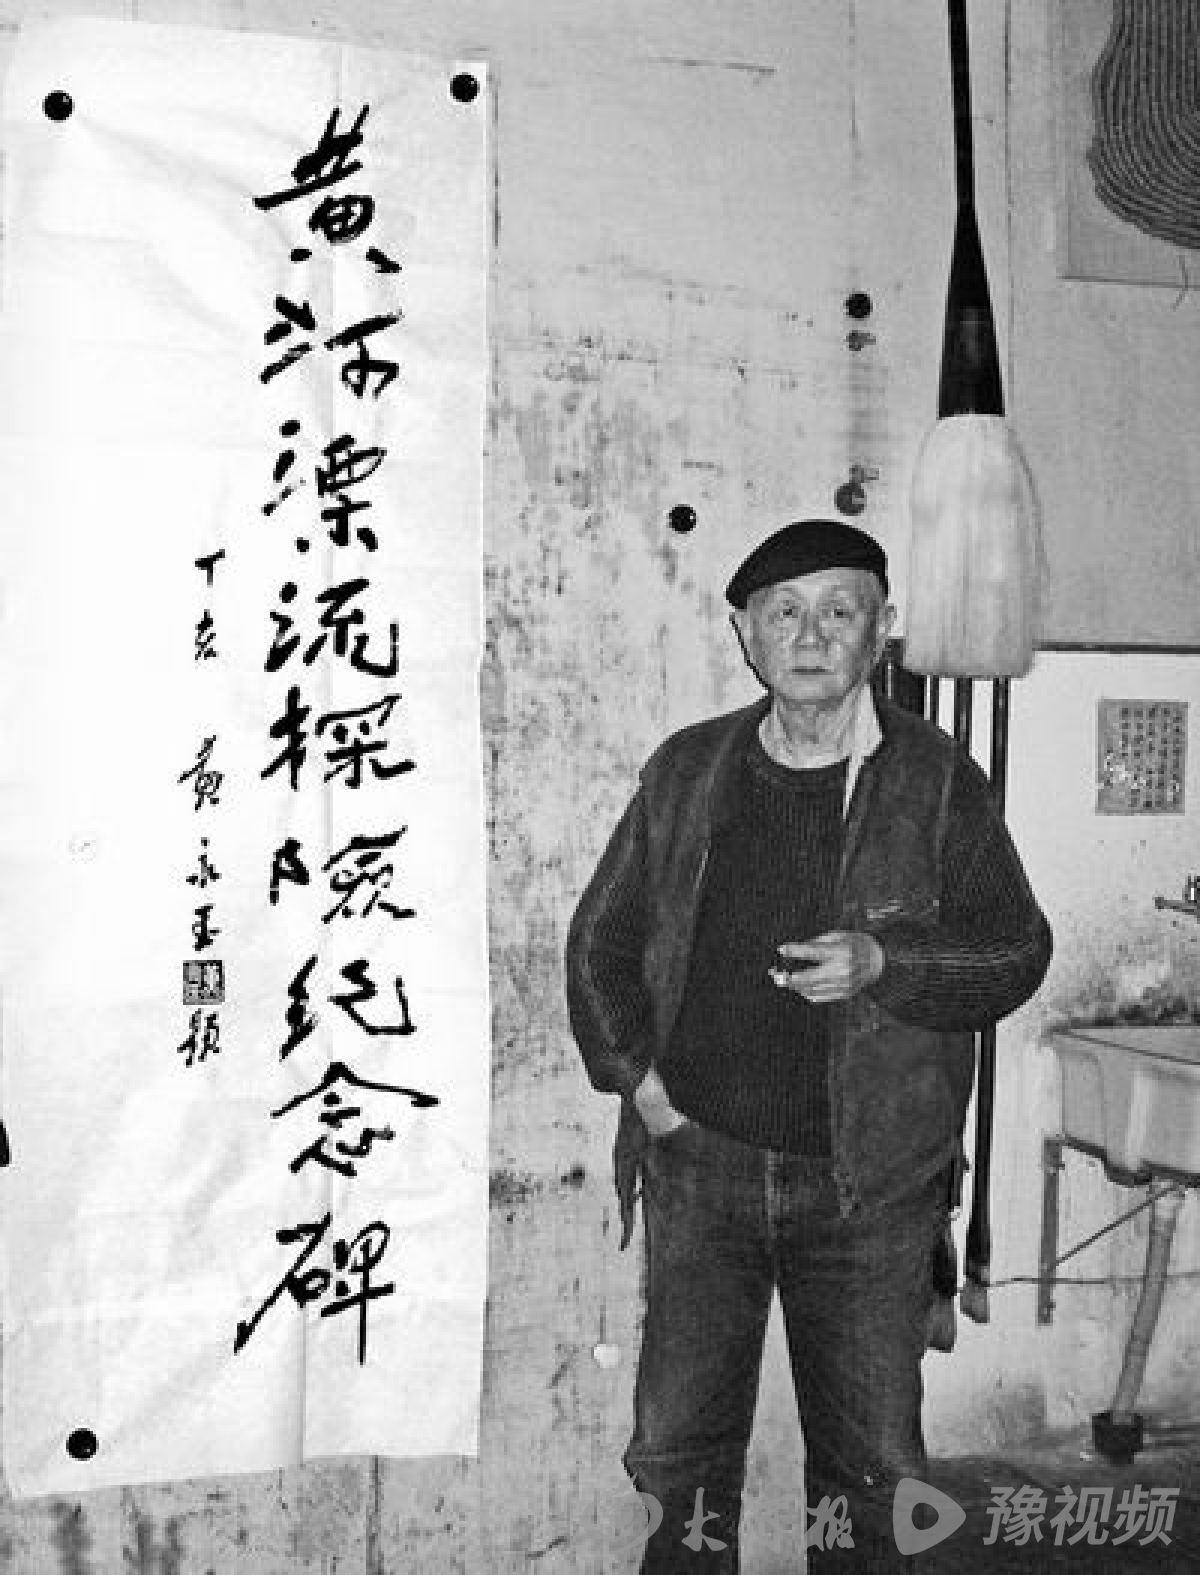 黄河漂流探险纪念碑
丁亥 黄永玉题
大 报
豫视频